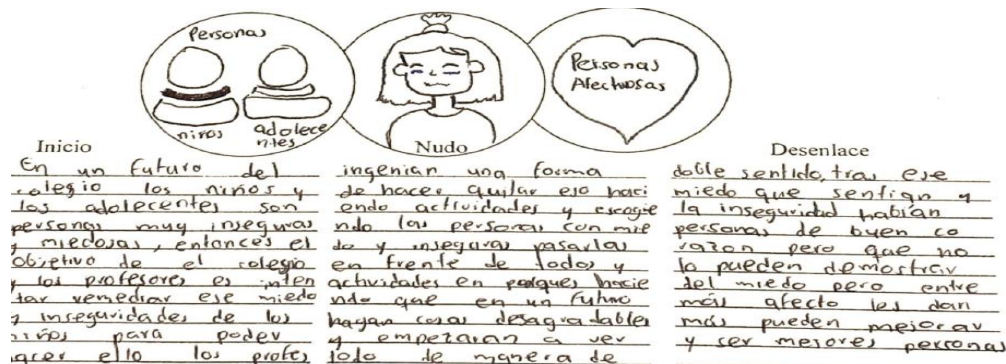 Personas
niños
adolece
ntes
Personas
Afectuosas
Inicio
En un futuro del
colegio los niños y
los adolecentes son
personas muy inseguras
y miedosas, entonces el
objetivo de el colegio
y los profesores es inten
tar remediar ese miedo
y inseguridades de los
niños para poder
hacer ello los profes
Nudo
ingenian una forma
de hacer quitar eso haci
endo actividades y escogie
ndo las personas con mie
do y inseguras pasarlas
en frente de todos y
actividades en parques hacie
ndo que en un futuro
hagan cosas desagradables
y empezaran a ver
todo de manera de
Desenlace
doble sentido, tras ese
miedo que sentian y
la inseguridad habian
personas de buen co
razon pero que no
lo pueden demostrar
del miedo pero entre
más afecto les dan
más pueden mejorar
y ser mejores personas